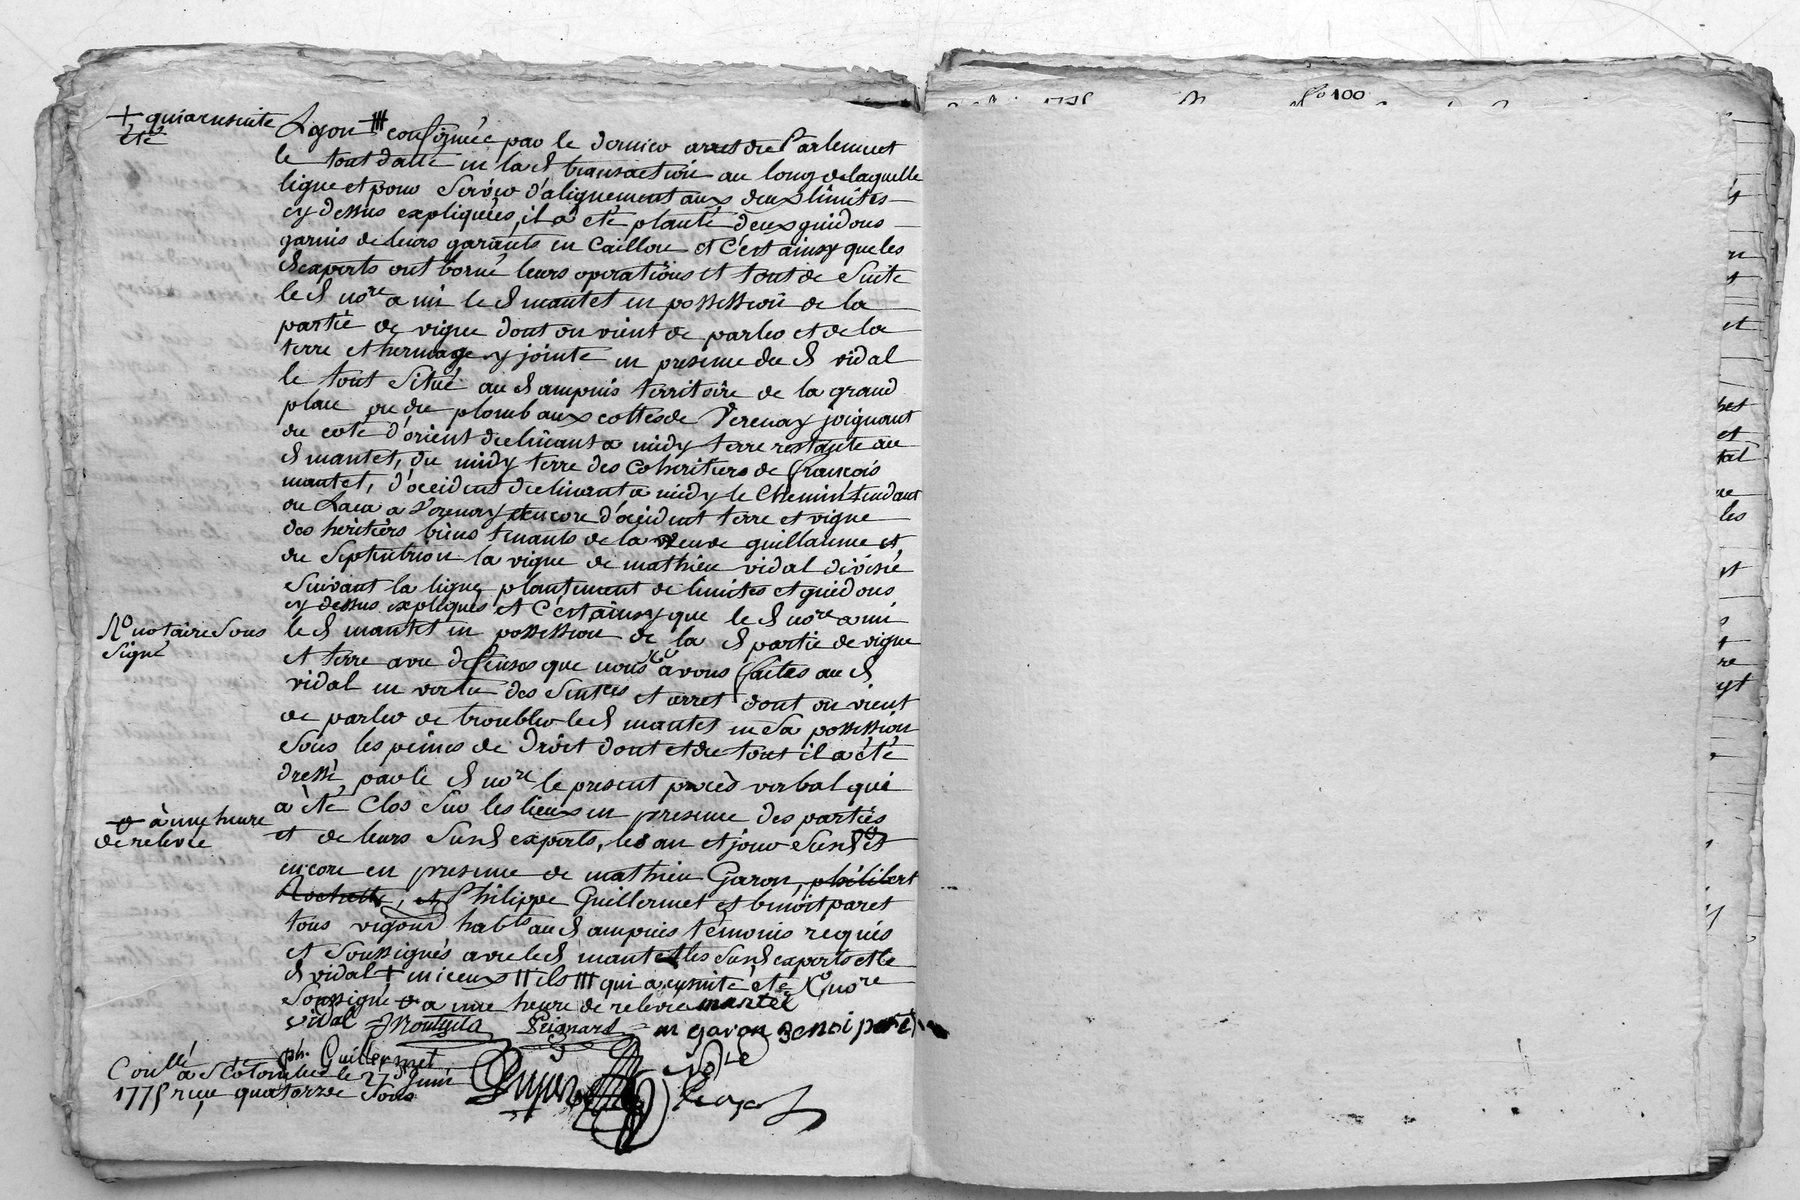 fo 100
+ qui a ensuite
été
Lyon # confirmée par le dernier arret du Parlement
le tout datté en la d transaction au long de laquelle
ligne et pour servir d'alignement aux deux limites
cy dessus expliquées, il a eté planté deux guidons
garnis de leurs garants en caillou et c'est ainsy que les
d experts ont borné leurs operations et tout de suite
le d nore a mi le d mantet en possession de la
partie de vigne dont on vient de parler et de la
terre et hermage y jointe en presence du d vidal
le tout situé au d ampuis territoire de la grand
plan ou du plomb aux cottes de Verenay joignant
du coté d'orient declinant a midy terre restante au
d mantet, du midy terre des coheritiers de francois
mantet, d'occident declinant a midy le chemin tendant
de a Verenay et encore d'occident terre et vigne
des heritiers biens tenants de la veuve guillaume et
du Septentrion la vigne de mathieu vidal divisée
suivant la ligne plantement de limites et guidons
cy dessus expliqués et c'est ainsy que le d nore a mi
le d mantet en possession de la d partie de vigne
No notaire sous
signé
et terre avec defenses que nous No avons faites au d
vidal en vertu des sentces et arret dont on vient
de parler de troubler le d mantet en sa possession
sous les peines de droit dont et du tout il a été
dressé par le d nore le present procès verbal qui
a été clos sur les lieux en presence des parties
à une heure
de relevée
et de leurs susd experts, les an et jour susd et
encore en presence de mathieu Garon, philibert
Rochette, et Philippe Guillermet et benoit paret
tous vigons habts au d ampuis temoins requis
et soussignés avec le d mantet les susd experts et le
d vidal + iceux # ils # qui a ensuite été No nore
soussigné a une heure de relevée mantel
vidal Peignard m garon Benoi paré
ph. Guillermet
Coullé a Ste Colombe le 27 Juin
1775 reçu quatorze sous